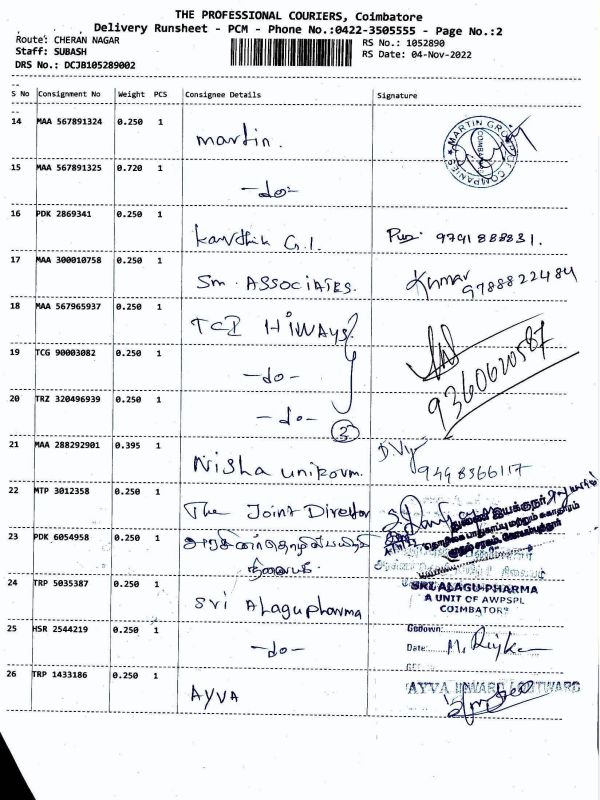 THE PROFESSIONAL COURIERS, Coimbatore
Delivery Runsheet - PCM - Phone No.:0422-3505555 - Page No.:2
Route: CHERAN NAGAR
RS No.: 1052890
Staff: SUBASH
RS Date: 04-Nov-2022
DRS No.: DCJB105289002
S No Consignment No Weight PCS Consignee Details Signature
14 MAA 567891324 0.250 1
martin.
MARTIN GROUP OF COMPANIES
15 MAA 567891325 0.720 1
-do-
16 PDK 2869341 0.250 1
Karthik G.I. 9791888831.
17 MAA 300010758 0.250 1
Sm. ASSOCIATES. Kumar
9788822484
18 MAA 567965937 0.250 1
TCI HIWAYS
19 TCG 90003082 0.250 1
-do-
9360620587
20 TRZ 320496939 0.250 1
-do-
3
21 MAA 288292901 0.395 1
Nisha uniform.
22 MTP 3012358 0.250 1
The Joint Director
23 PDK 6054958 0.250 1
24 TRP 5035387 0.250 1
Sri Alagu pharma
SRI ALAGU PHARMA
A UNIT OF AWPSPL
COIMBATORE
25 HSR 2544219 0.250 1
-do-
Godown:
Date:
26 TRP 1433186 0.250 1
AYVA
AYVA INWARD / OUTWARD